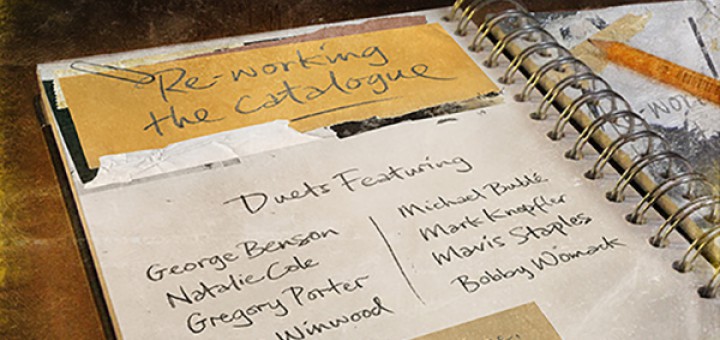 Re-working
the Catalogue
Duets Featuring
George Benson
Natalie Cole
Gregory Porter
Winwood
Michael Bublé
Mark Knopfler
Mavis Staples
Bobby Womack